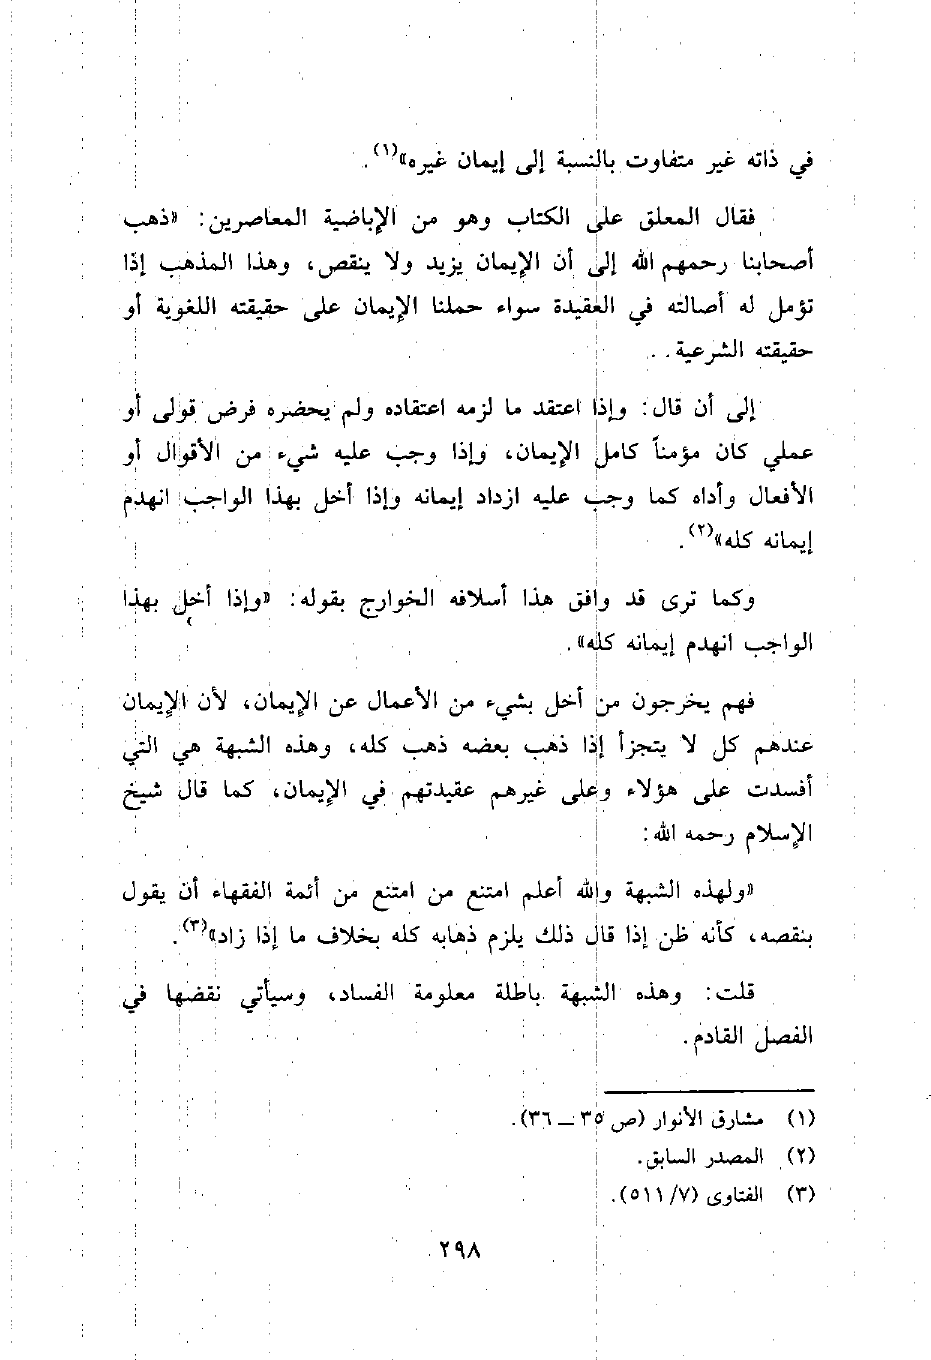 في ذاته غير متفاوت بالنسبة إلى إيمان غيره»(١).
فقال المعلق على الكتاب وهو من الإباضية المعاصرين: «ذهب
أصحابنا رحمهم الله إلى أن الإيمان يزيد ولا ينقص، وهذا المذهب إذا
تؤمل له أصالته في العقيدة سواء حملنا الإيمان على حقيقته اللغوية أو
حقيقته الشرعية..
إلى أن قال: وإذا اعتقد ما لزمه اعتقاده ولم يحضره فرض قولى أو
عملي كان مؤمناً كامل الإيمان، وإذا وجب عليه شيء من الأقوال أو
الأفعال وأداه كما وجب عليه ازداد إيمانه وإذا أخل بهذا الواجب انهدم
إيمانه كله»(٢).
وكما ترى قد وافق هذا أسلافه الخوارج بقوله: «وإذا أخل بهذا
الواجب انهدم إيمانه كله».
فهم يخرجون من أخل بشيء من الأعمال عن الإيمان، لأن الإيمان
عندهم كل لا يتجزأ إذا ذهب بعضه ذهب كله، وهذه الشبهة هي التي
أفسدت على هؤلاء وعلى غيرهم عقيدتهم في الإيمان، كما قال شيخ
الإسلام رحمه الله:
«ولهذه الشبهة والله أعلم امتنع من امتنع من أئمة الفقهاء أن يقول
بنقصه، كأنه ظن إذا قال ذلك يلزم ذهابه كله بخلاف ما إذا زاد»(٣).
قلت: وهذه الشبهة باطلة معلومة الفساد، وسيأتي نقضها في
الفصل القادم.
(١) مشارق الأنوار (ص ٣٥ – ٣٦).
(٢) المصدر السابق.
(٣) الفتاوى (٧/ ٥١١).
٢٩٨